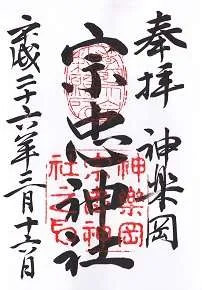 奉拝 神楽岡
宗忠神社
神樂岡
宗忠神
社之印
平成二十六年三月十六日